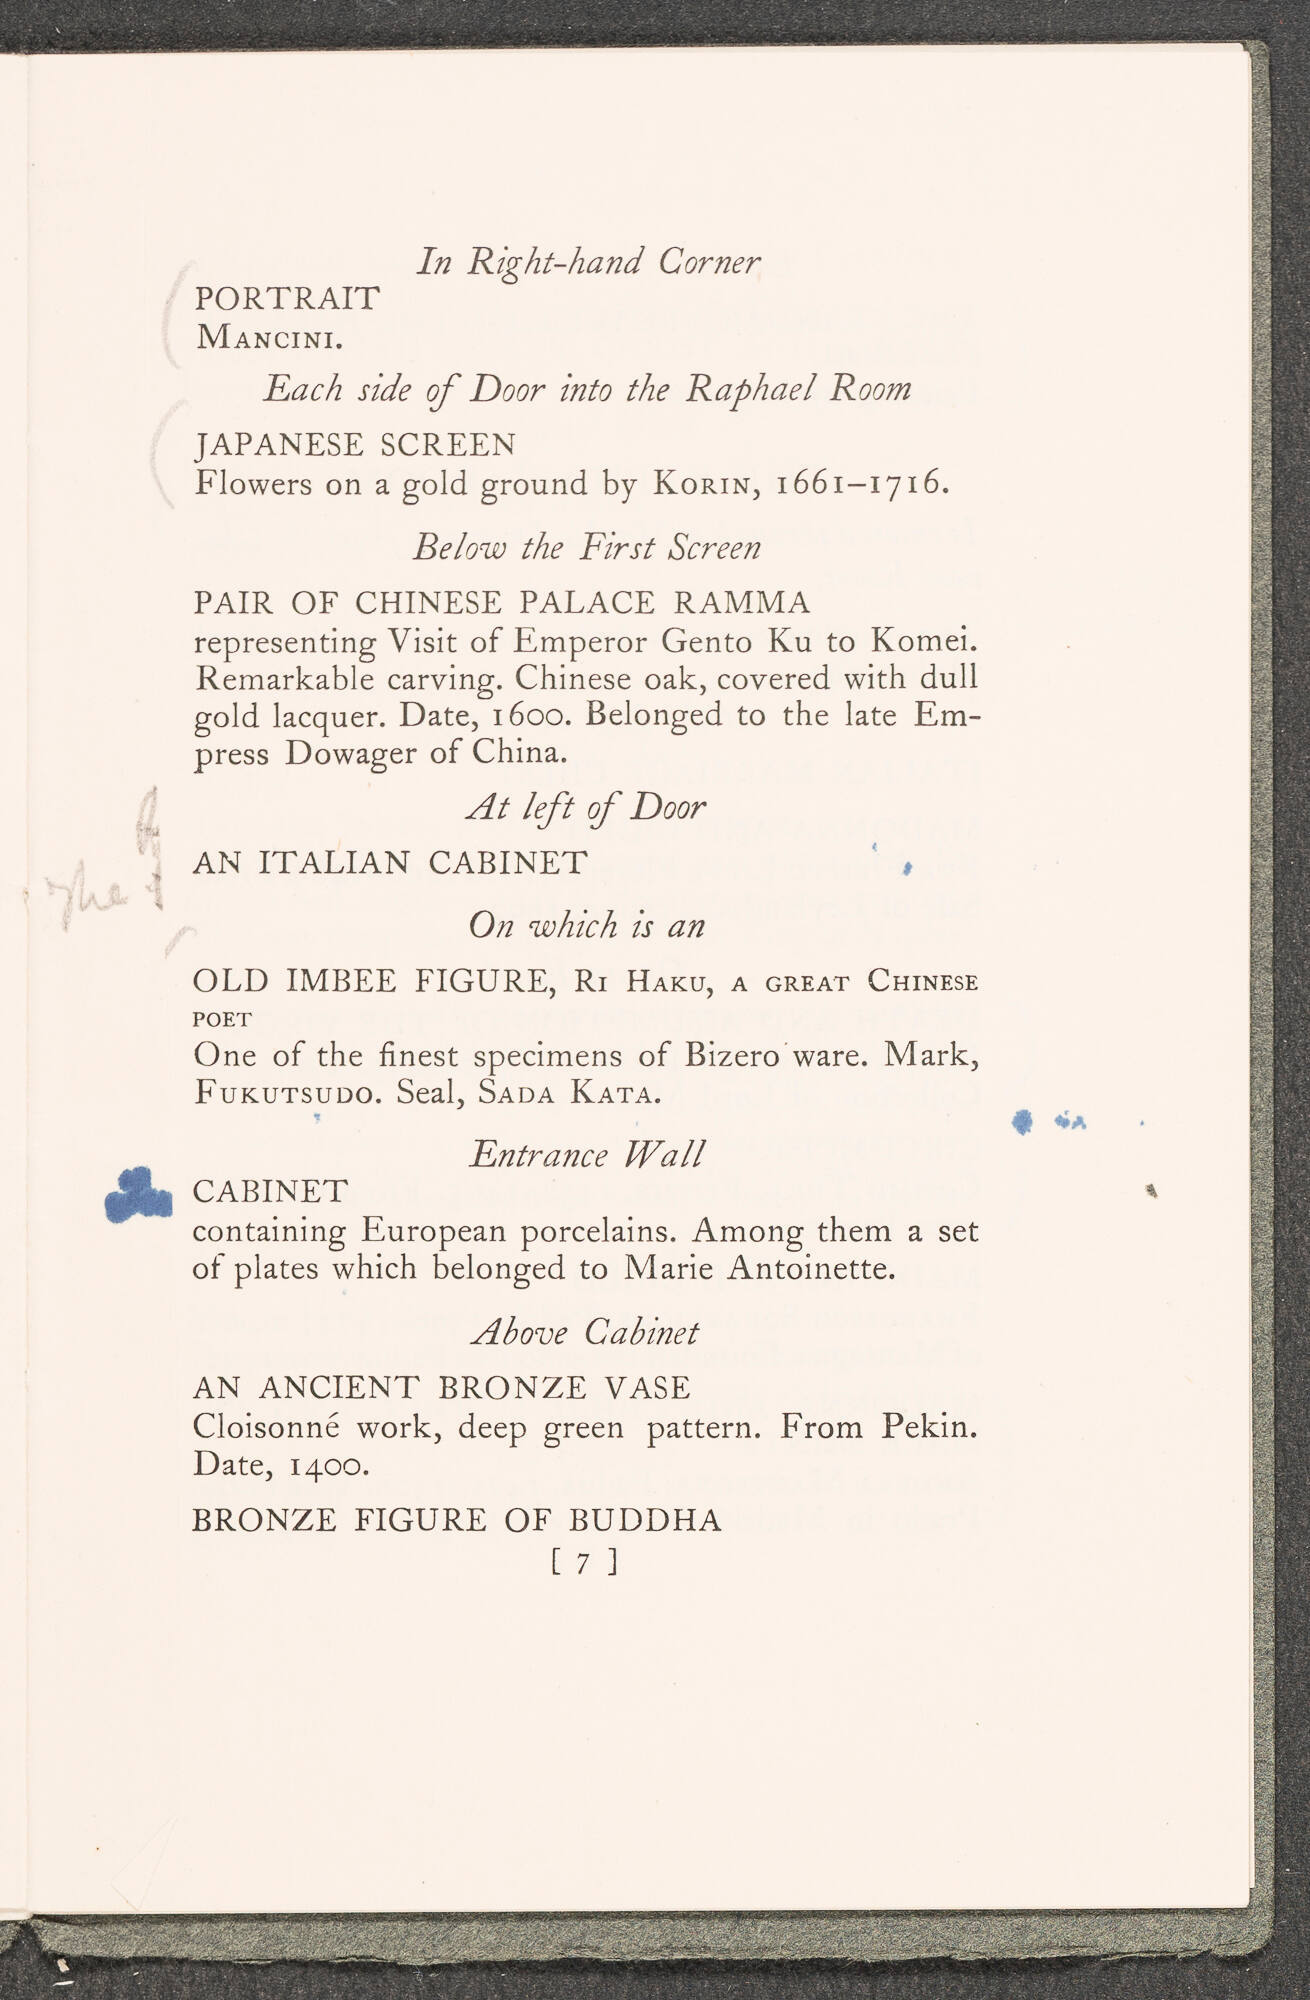 In Right-hand Corner
PORTRAIT
MANCINI.
Each side of Door into the Raphael Room
JAPANESE SCREEN
Flowers on a gold ground by KORIN, 1661–1716.
Below the First Screen
PAIR OF CHINESE PALACE RAMMA
representing Visit of Emperor Gento Ku to Komei.
Remarkable carving. Chinese oak, covered with dull
gold lacquer. Date, 1600. Belonged to the late Em-
press Dowager of China.
At left of Door
AN ITALIAN CABINET
On which is an
OLD IMBEE FIGURE, RI HAKU, A GREAT CHINESE
POET
One of the finest specimens of Bizero ware. Mark,
FUKUTSUDO. Seal, SADA KATA.
Entrance Wall
CABINET
containing European porcelains. Among them a set
of plates which belonged to Marie Antoinette.
Above Cabinet
AN ANCIENT BRONZE VASE
Cloisonné work, deep green pattern. From Pekin.
Date, 1400.
BRONZE FIGURE OF BUDDHA
[ 7 ]